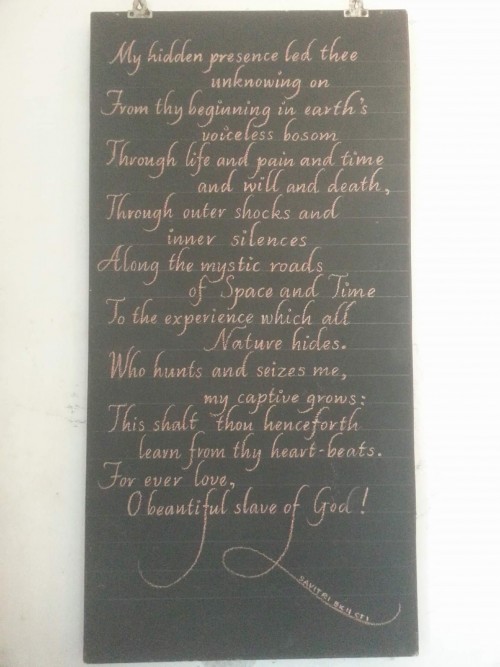 My hidden presence led thee
unknowing on
From thy beginning in earth's
voiceless bosom
Through life and pain and time
and will and death,
Through outer shocks and
inner silences
Along the mystic roads
of Space and Time
To the experience which all
Nature hides.
Who hunts and seizes me,
my captive grows:
This shalt thou henceforth
learn from thy heart-beats.
For ever love,
O beautiful slave of God!
SAVITRI